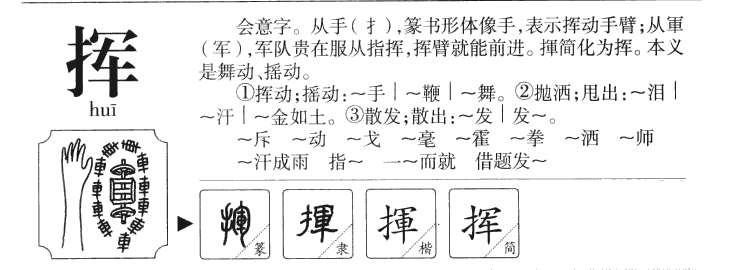 挥
huī
会意字。从手(扌),篆书形体像手,表示挥动手臂;从軍
(军),军队贵在服从指挥,挥臂就能前进。揮简化为挥。本义
是舞动、摇动。
①挥动;摇动:～手｜～鞭｜～舞。②抛洒;甩出:～泪｜
～汗｜～金如土。③散发;散出:～发｜发～。
～斥 ～动 ～戈 ～毫 ～霍 ～拳 ～洒 ～师
～汗成雨 指～ 一～而就 借题发～
揮 篆
揮 隶
揮 楷
挥 简